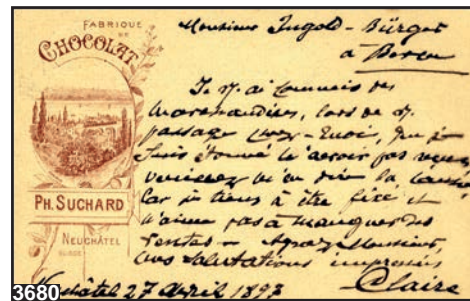 FABRIQUE
DE
CHOCOLAT
PH. SUCHARD
NEUCHÂTEL
SUISSE
Monsieur Ingold-Bürget
à Berne
Je v. ai commis des
marchandises, lors de v.
passage chez-moi, que je
suis étonné de avoir pas
veuillez m'en dire la cause
Car je tiens à être fixé et
n'aime pas à manquer des
ventes - Agréez Monsieur,
mes salutations
Claire
Neuchâtel 27 Avril 1893
3680